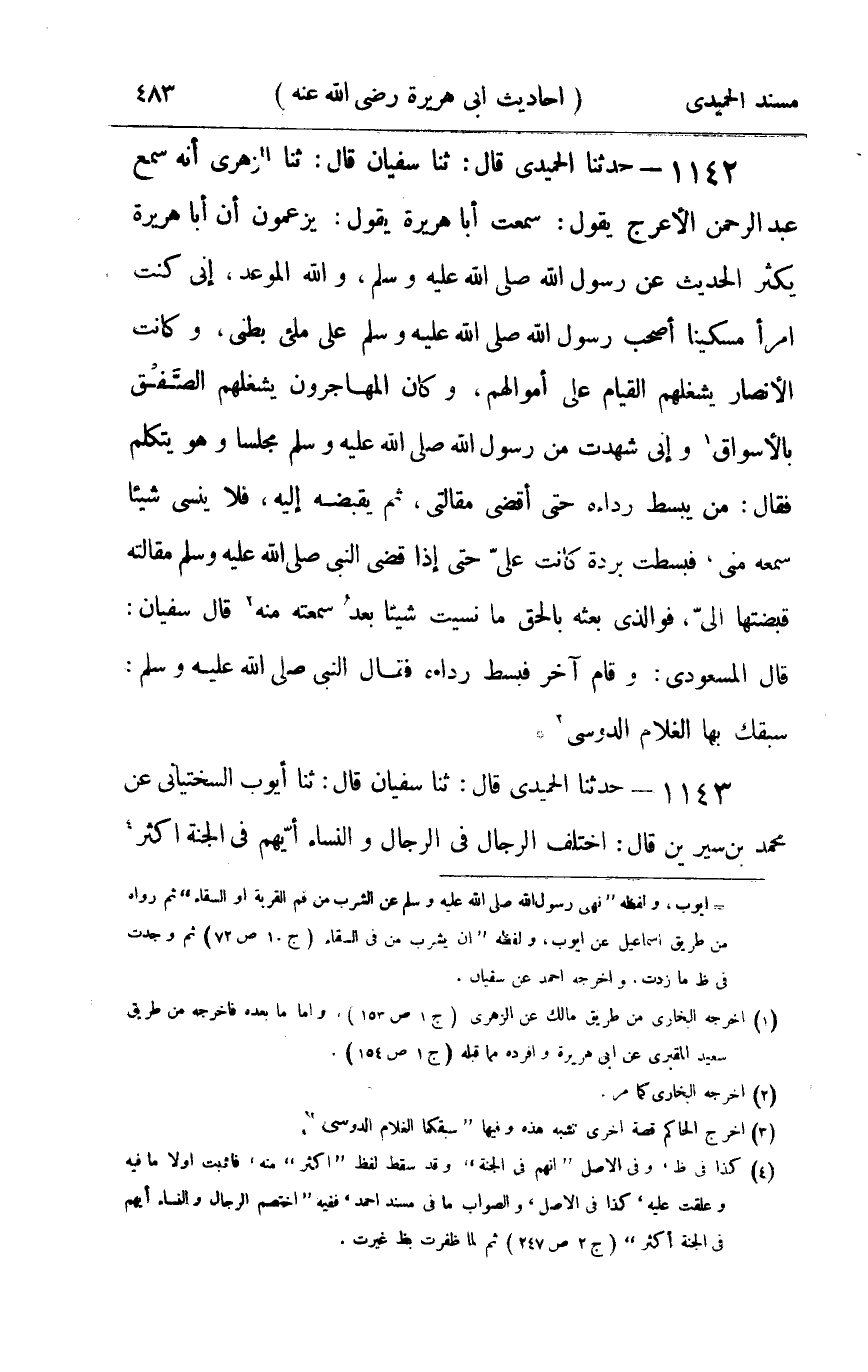 مسند الحميدى ( احاديث ابى هريرة رضى الله عنه ) ٤٨٣
١١٤٢ – حدثنا الحميدى قال : ثنا سفيان قال : ثنا الزهرى أنه سمع
عبد الرحمن الأعرج يقول : سمعت أبا هريرة يقول : يزعمون أن أبا هريرة
يكثر الحديث عن رسول الله صلى الله عليه و سلم ، و الله الموعد ، إنى كنت
امرأ مسكينا أصحب رسول الله صلى الله عليه و سلم على ملئ بطنى ، و كانت
الأنصار يشغلهم القيام على أموالهم ، و كان المهاجرون يشغلهم الصَّفْق
بالأسواق١ و إنى شهدت من رسول الله صلى الله عليه و سلم مجلسا و هو يتكلم
فقال : من يبسط رداءه حتى أقضى مقالتى ، ثم يقبضه إليه ، فلا ينسى شيئا
سمعه منى ، فبسطت بردة كانت علىّ حتى إذا قضى النبى صلى الله عليه وسلم مقالته
قبضتها الىّ ، فوالذى بعثه بالحق ما نسيت شيئا بعدُ سمعته منه٢ قال سفيان :
قال المسعودى : و قام آخر فبسط رداءه فقال النبى صلى الله عليه و سلم :
سبقك بها الغلام الدوسى٣ *
١١٤٣ – حدثنا الحميدى قال : ثنا سفيان قال : ثنا أيوب السختيانى عن
محمد بن سيرين قال : اختلف الرجال فى الرجال و النساء أيّهم فى الجنة اكثر٤
= ايوب ، و لفظه "نهى رسول الله صلى الله عليه و سلم عن الشرب من فم القربة او السقاء" ثم رواه
من طريق اسماعيل عن ايوب ، و لفظه "ان يشرب من فى السقاء ( ج ١٠ ص ٧٢ ) ثم وجدت
فى ظ ما زدت . و اخرجه احمد عن سفيان .
(١) اخرجه البخارى من طريق مالك عن الزهرى ( ج ١ ص ١٥٣ ) ، و اما ما بعده فاخرجه من طريق
سعيد المقبرى عن ابى هريرة و افرده مما قبله ( ج ١ ص ١٥٤ ) .
(٢) اخرجه البخارى كما مر .
(٣) اخرج الحاكم قصة اخرى تشبه هذه وفيها "سبقكما الغلام الدوسى" .
(٤) كذا فى ظ ، و فى الاصل "انهم فى الجنة" و قد سقط لفظ "اكثر" منه ، فاثبت اولا ما فيه
و علقت عليه ، كذا فى الاصل ، و الصواب ما فى مسند احمد ، ففيه "اختصم الرجال والنساء أيهم
فى الجنة أكثر" ( ج ٢ ص ٢٤٧ ) ثم لما ظفرت بظ غيرت .